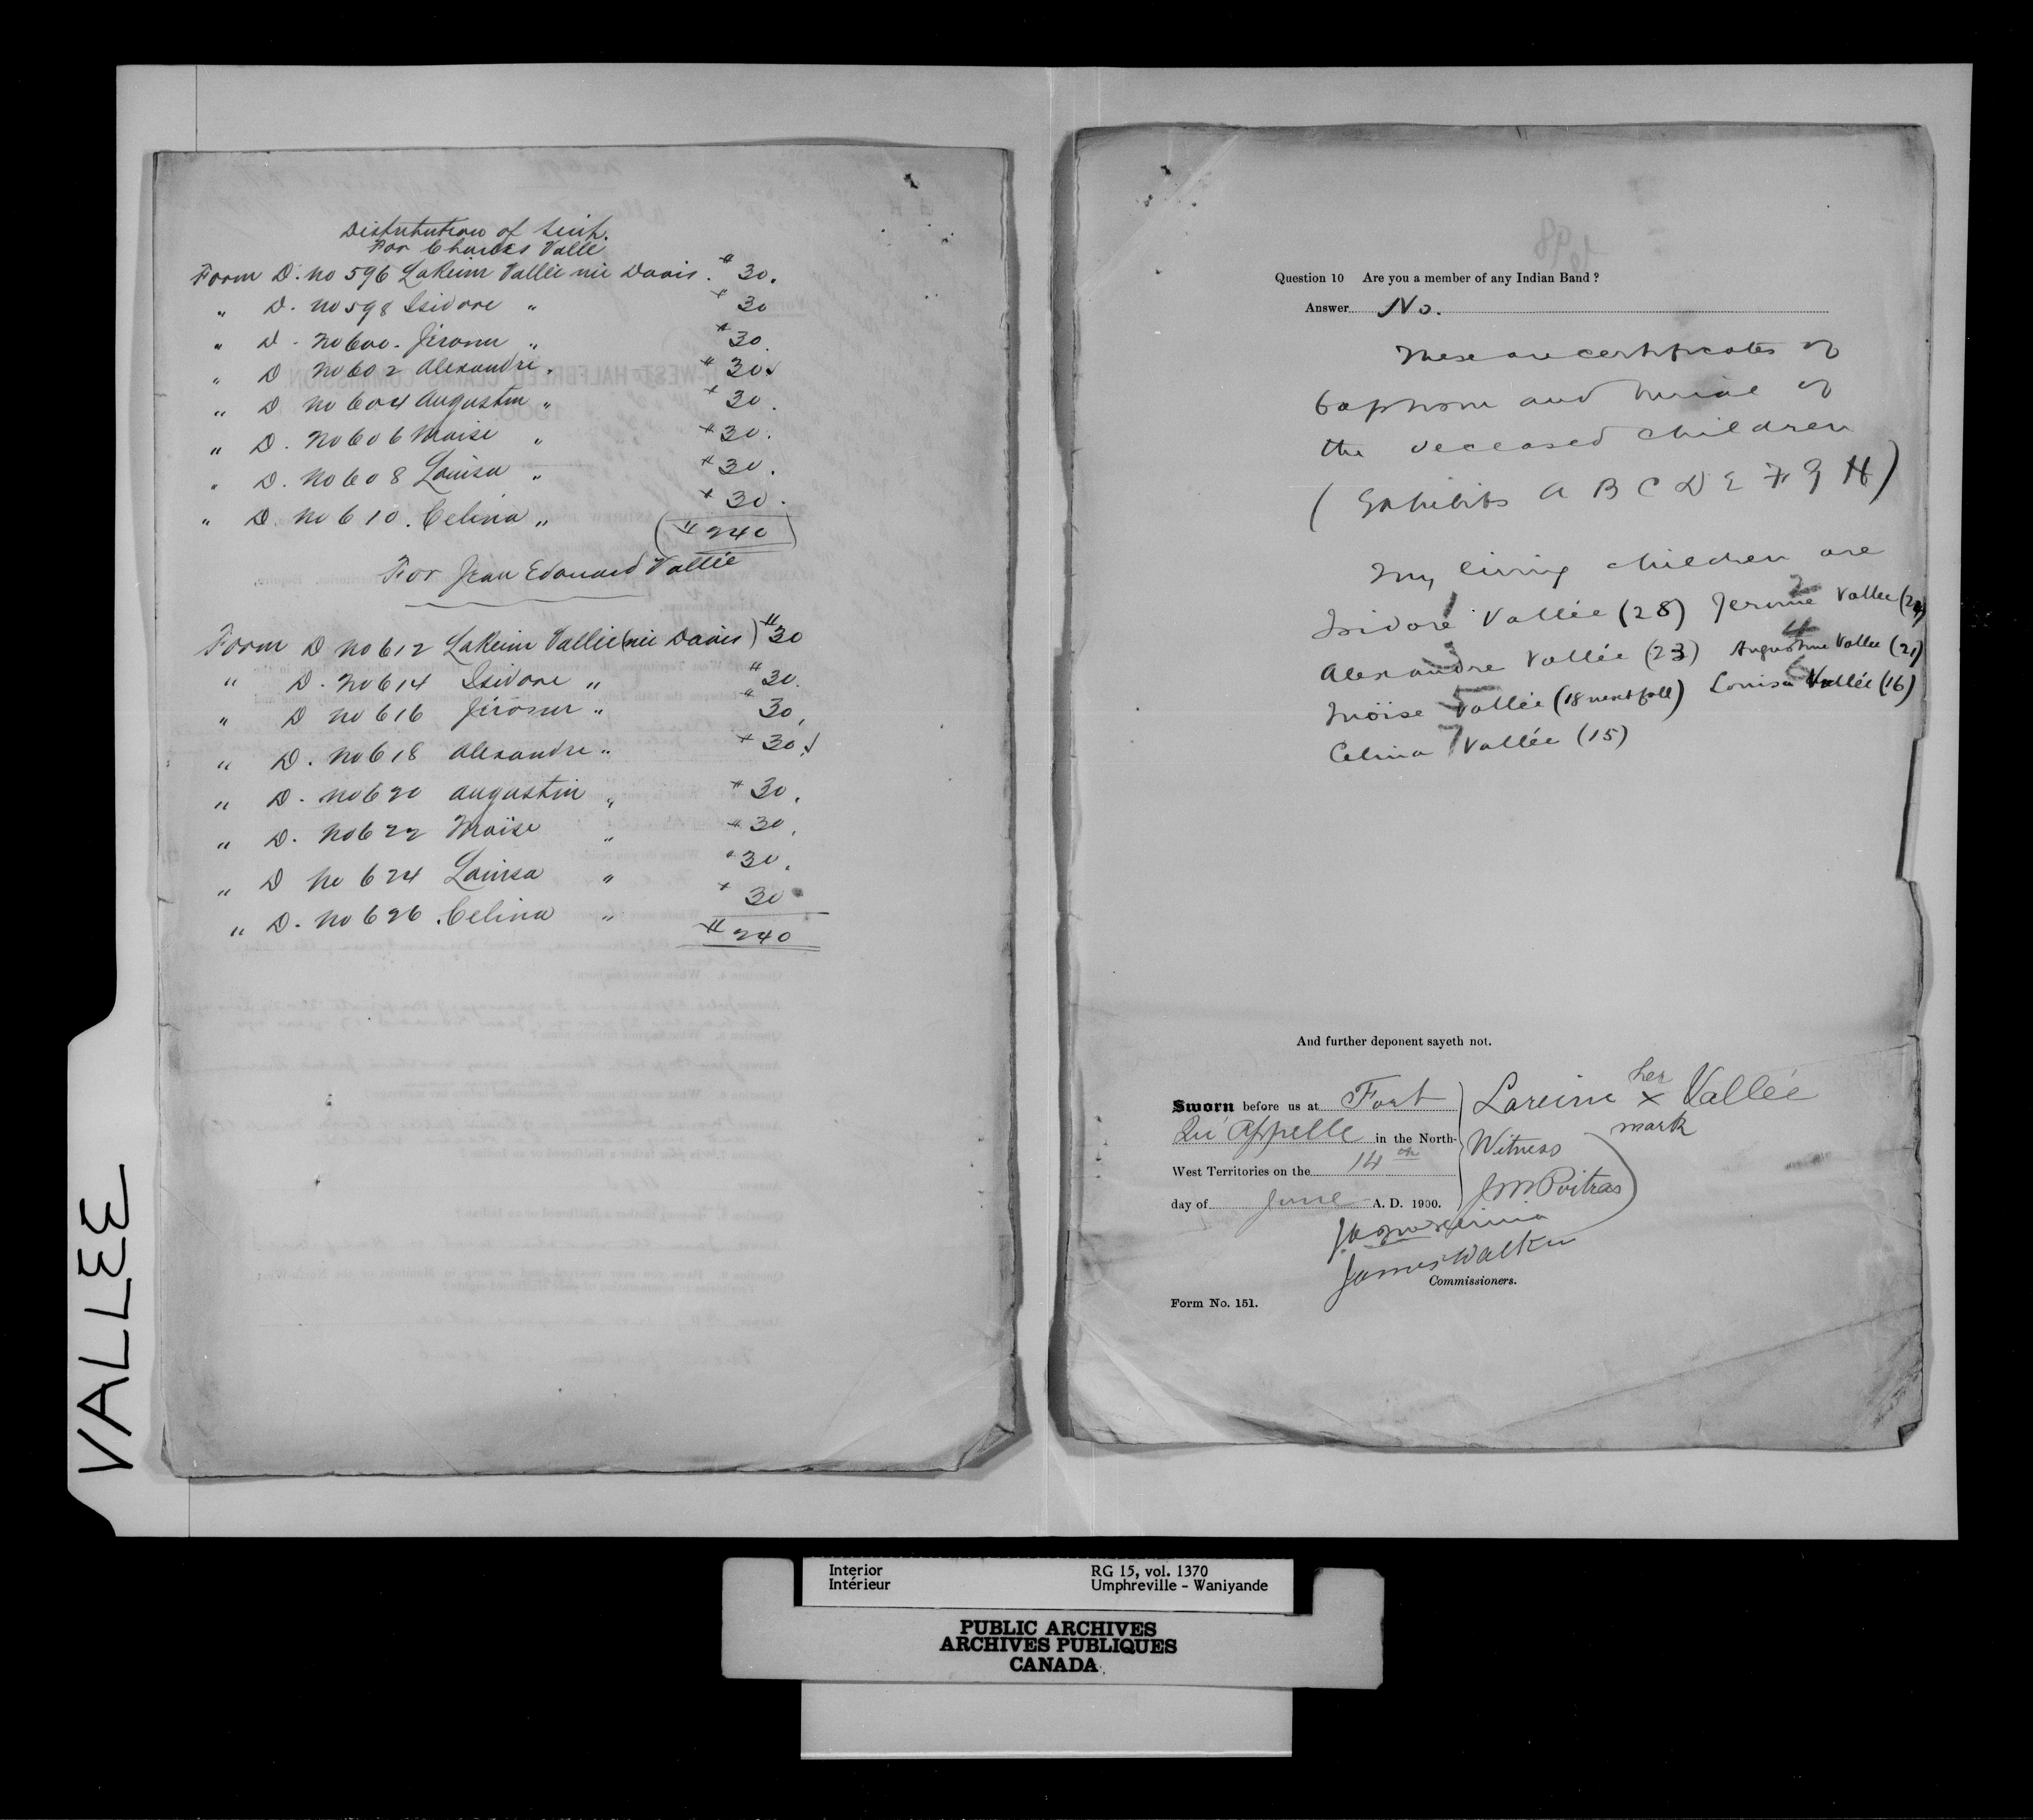 Distribution of Scrip.
For Charles Vallé
Form D. no 596 LaReine Vallée née Davis. $30.
" D. no 598 Isidore " $30
" D. no 600. Jérome " $30.
" D no 602 Alexandre. $30.
" D no 604 Augustin " $30.
" D. no 606 Moise " $30.
" D. no 608 Louisa " $30.
" D. no 610. Celina " $30.
($240)
For Jean Edouard Vallée
Form D no 612 LaReine Vallée (née Davis) $30
" D. no 614 Isidore " $30.
" D no 616 Jérome " $30.
" D. no 618 Alexandre " $30.
" D. no 620 Augustin " $30.
" D. no 622 Moïse " $30.
" D no 624 Louisa " $30.
" D. no 626 Celina " $30
$240
VALLEE
Question 10 Are you a member of any Indian Band?
Answer No.
These are certificates of
baptism and burial of
the deceased children
(Exhibits A B C D E F G H)
My living children are
Isidore Vallée (28) Jerome Vallee
Alexandre Vallée (23) Augustine Vallee (21)
Moïse Vallée (18 next fall) Louisa Vallée (16)
Celina Vallée (15)
And further deponent sayeth not.
Sworn before us at Fort
Qu'Appelle in the North-
West Territories on the 14th
day of June A. D. 1900.
Lareine her x mark Vallée
Witness
J M Poitras
James Walker
Commissioners.
Form No. 151.
Interior
Intérieur
RG 15, vol. 1370
Umphreville - Waniyande
PUBLIC ARCHIVES
ARCHIVES PUBLIQUES
CANADA